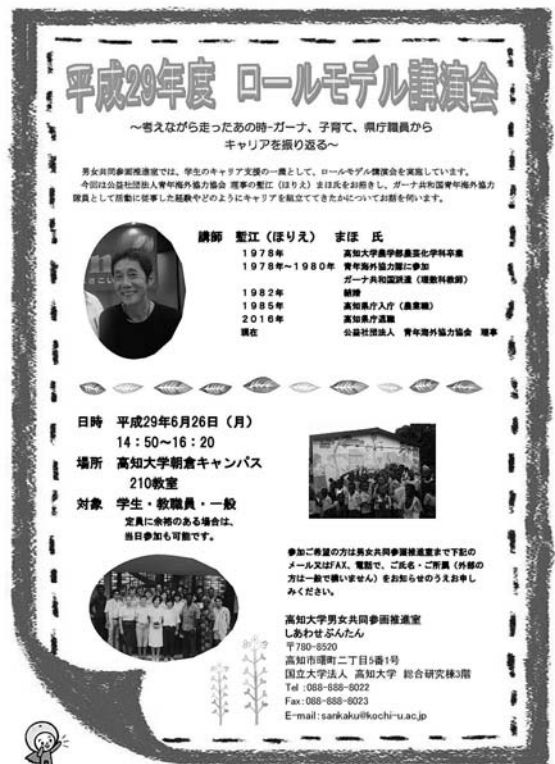 平成29年度 ロールモデル講演会
～考えながら走ったあの時-ガーナ、子育て、県庁職員から
キャリアを振り返る～
男女共同参画推進室では、学生のキャリア支援の一環として、ロールモデル講演会を実施しています。
今回は公益社団法人青年海外協力協会 理事の堲江（ほりえ）まほ氏をお招きし、ガーナ共和国青年海外協力
隊員として活動に従事した経験やどのようにキャリアを組立ててきたかについてお話を伺います。
講師 堲江（ほりえ） まほ 氏
1978年 高知大学農学部農芸化学科卒業
1978年～1980年 青年海外協力隊に参加
ガーナ共和国派遣（理数科教師）
1982年 結婚
1985年 高知県庁入庁（農業職）
2016年 高知県庁退職
現在 公益社団法人 青年海外協力協会 理事
日時 平成29年6月26日（月）
14：50～16：20
場所 高知大学朝倉キャンパス
210教室
対象 学生・教職員・一般
定員に余裕のある場合は、
当日参加も可能です。
参加ご希望の方は男女共同参画推進室まで下記の
メール又はFAX、電話で、ご氏名・ご所属（外部の
方は一般で構いません）をお知らせのうえお申し
込みください。
高知大学男女共同参画推進室
しあわせぶんたん
〒780-8520
高知市曙町二丁目5番1号
国立大学法人 高知大学 総合研究棟3階
Tel :088-888-8022
Fax:088-888-8023
E-mail:sankaku@kochi-u.ac.jp